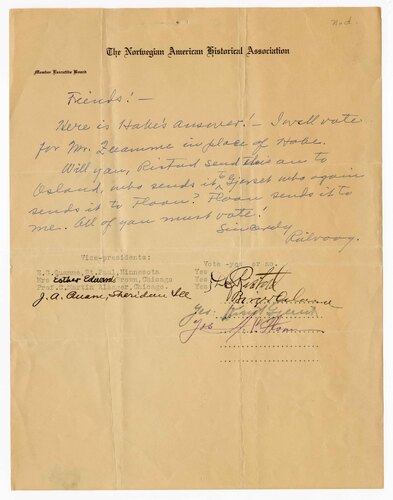 n.d.
The Norwegian American Historical Association
Member Executive Board
Friends! —
Here is Hobe's answer! — I will vote
for Mr. Quamme in place of Hobe.
Will you, Ristad send this on to
Osland, who sends it to Gjerset who again
sends it to Floan? Floan sends it to
me. All of you must vote!
Sincerely
Rölvaag.
Vice-presidents:
Vote -yes or no.
Quamme, St.Paul, Minnesota Yes
Mrs Esther Chicago Yes
Chicago Yes
J. A. Quam, Sheridan Ill
Ristad
Birger Osland
Yes: Knut Gjerset
Yes